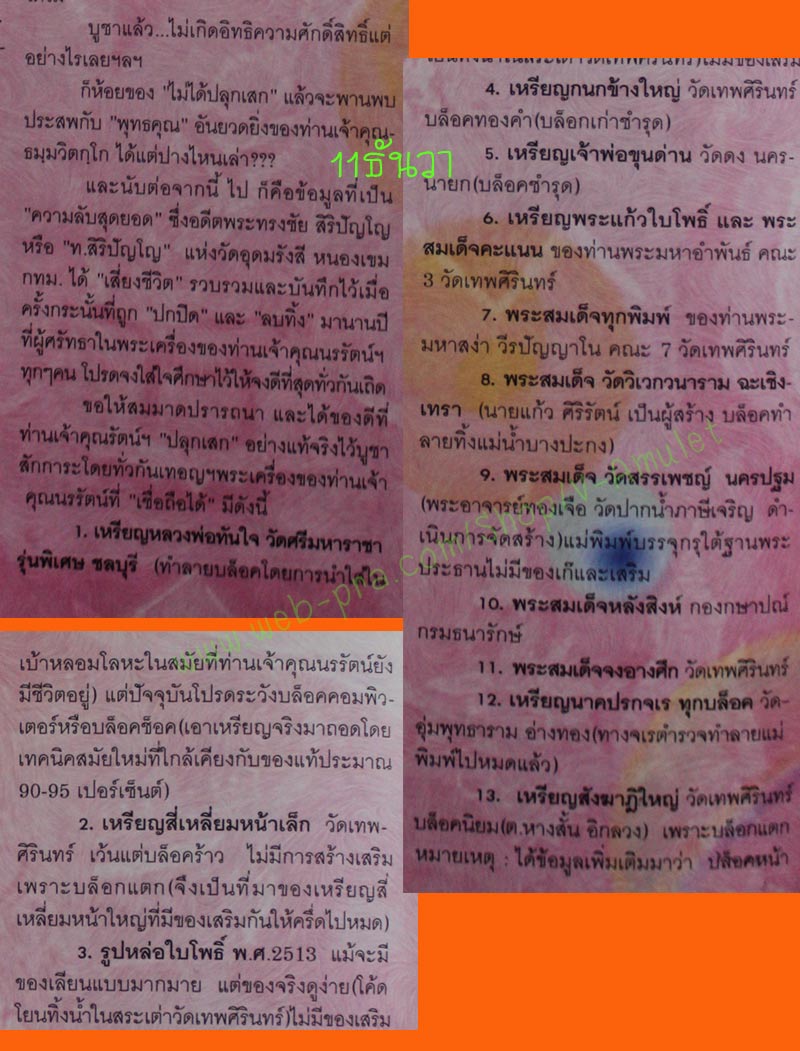 บูชาแล้ว...ไม่เกิดอิทธิความศักดิ์สิทธิ์แต่
อย่างไรเลยฯลฯ
ก็ห้อยของ "ไม่ได้ปลุกเสก" แล้วจะพานพบ
ประสพกับ "พุทธคุณ" อันยวดยิ่งของท่านเจ้าคุณ-
ธมฺมวิตกฺโก ได้แต่ปางไหนเล่า???
และนับต่อจากนี้ ไป ก็คือข้อมูลที่เป็น
"ความลับสุดยอด" ซึ่งอดีตพระทรงชัย สิริปัญโญ
หรือ "ท.สิริปัญโญ" แห่งวัดอุดมรังสี หนองแขม
กทม. ได้ "เสี่ยงชีวิต" รวบรวมและบันทึกไว้เมื่อ
ครั้งกระนั้นที่ถูก "ปกปิด" และ "ลบทิ้ง" มานานปี
ที่ผู้ศรัทธาในพระเครื่องของท่านเจ้าคุณนรรัตน์ฯ
ทุกๆคน โปรดจงใส่ใจศึกษาไว้ให้จงดีที่สุดทั่วกันเถิด
ขอให้สมมาดปรารถนา และได้ของดีที่
ท่านเจ้าคุณรัตน์ฯ "ปลุกเสก" อย่างแท้จริงไว้บูชา
สักการะโดยทั่วกันเทอญฯพระเครื่องของท่านเจ้า
คุณนรรัตน์ที่ "เชื่อถือได้" มีดังนี้
1. เหรียญหลวงพ่อทันใจ วัดศรีมหาราชา
รุ่นพิเศษ ชลบุรี (ทำลายบล็อคโดยการนำใส่ใน
เบ้าหลอมโลหะในสมัยที่ท่านเจ้าคุณนรรัตน์ยัง
มีชีวิตอยู่) แต่ปัจจุบันโปรดระวังบล็อคคอมพิว-
เตอร์หรือบล็อคช็อค(เอาเหรียญจริงมาถอดโดย
เทคนิคสมัยใหม่ที่ใกล้เคียงกับของแท้ประมาณ
90-95 เปอร์เซ็นต์)
2. เหรียญสี่เหลี่ยมหน้าเล็ก วัดเทพ-
ศิรินทร์ เว้นแต่บล็อคร้าว ไม่มีการสร้างเสริม
เพราะบล็อกแตก(จึงเป็นที่มาของเหรียญสี่
เหลี่ยมหน้าใหญ่ที่มีของเสริมกันให้ครืดไปหมด)
3. รูปหล่อใบโพธิ์ พ.ศ.2513 แม้จะมี
ของเลียนแบบมากมาย แต่ของจริงดูง่าย(โค้ด
โยนทิ้งน้ำในสระเต่าวัดเทพศิรินทร์)ไม่มีของเสริม
เป็นทิ้งน้ำในสระเต่าวัดเทพศิรินทร์)ไม่มีของเสริม
4. เหรียญกนกข้างใหญ่ วัดเทพศิรินทร์
บล็อคทองคำ(บล็อกเก่าชำรุด)
5. เหรียญเจ้าพ่อขุนด่าน วัดดง นคร-
นายก(บล็อคชำรุด)
6. เหรียญพระแก้วใบโพธิ์ และ พระ
สมเด็จคะแนน ของท่านพระมหาอำพันธ์ คณะ
3 วัดเทพศิรินทร์
7. พระสมเด็จทุกพิมพ์ ของท่านพระ-
มหาสง่า วีรปัญญาโน คณะ 7 วัดเทพศิรินทร์
8. พระสมเด็จ วัดวิเวกวนาราม ฉะเชิง-
เทรา (นายแก้ว ศิริรัตน์ เป็นผู้สร้าง บล็อคทำ
ลายทิ้งแม่น้ำบางปะกง)
9. พระสมเด็จ วัดสรรเพชญ์ นครปฐม
(พระอาจารย์ทองเจือ วัดปากน้ำภาษีเจริญ ดำ-
เนินการจัดสร้าง)แม่พิมพ์บรรจุกรุใต้ฐานพระ
ประธานไม่มีของเก๊และเสริม
10. พระสมเด็จหลังสิงห์ กองกษาปณ์
กรมธนารักษ์
11. พระสมเด็จจงอางศึก วัดเทพศิรินทร์
12. เหรียญนาคปรกจเร ทุกบล็อค วัด-
ชุ่มพุทธาราม อ่างทอง(ทางจเรตำรวจทำลายแม่
พิมพ์ไปหมดแล้ว)
13. เหรียญสังฆาฏิใหญ่ วัดเทพศิรินทร์
บล็อคนิยม(ต.หางสั้น อิกลวง) เพราะบล็อกแตก
หมายเหตุ : ได้ข้อมูลเพิ่มเติมมาว่า ปล็อคหน้า
11ธันวา